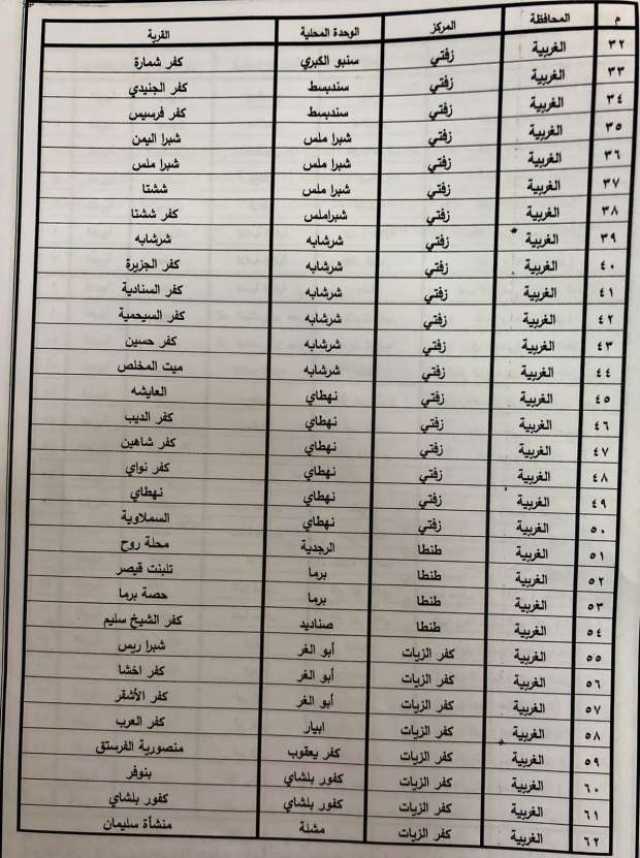 م المحافظة المركز الوحدة المحلية القرية
٣٢ الغربية زفتي سنبو الكبري كفر شمارة
٣٣ الغربية زفتي سندبسط كفر الجنيدي
٣٤ الغربية زفتي سندبسط كفر فرسيس
٣٥ الغربية زفتي شبرا ملس شبرا اليمن
٣٦ الغربية زفتي شبرا ملس شبرا ملس
٣٧ الغربية زفتي شبرا ملس ششتا
٣٨ الغربية زفتي شبراملس كفر ششتا
٣٩ الغربية زفتي شرشابه شرشابه
٤٠ الغربية زفتي شرشابه كفر الجزيرة
٤١ الغربية زفتي شرشابه كفر السنادية
٤٢ الغربية زفتي شرشابه كفر السيحمية
٤٣ الغربية زفتي شرشابه كفر حسين
٤٤ الغربية زفتي شرشابه ميت المخلص
٤٥ الغربية زفتي نهطاي العايشه
٤٦ الغربية زفتي نهطاي كفر الديب
٤٧ الغربية زفتي نهطاي كفر شاهين
٤٨ الغربية زفتي نهطاي كفر نواي
٤٩ الغربية زفتي نهطاي نهطاي
٥٠ الغربية زفتي نهطاي السملاوية
٥١ الغربية طنطا الرجدية محلة روح
٥٢ الغربية طنطا برما تلبنت قيصر
٥٣ الغربية طنطا برما حصة برما
٥٤ الغربية طنطا صناديد كفر الشيخ سليم
٥٥ الغربية كفر الزيات أبو الغر شبرا ريس
٥٦ الغربية كفر الزيات أبو الغر كفر اخشا
٥٧ الغربية كفر الزيات أبو الغر كفر الأشقر
٥٨ الغربية كفر الزيات ابيار كفر العرب
٥٩ الغربية كفر الزيات كفر يعقوب منصورية الفرستق
٦٠ الغربية كفر الزيات كفور بلشاي بنوفر
٦١ الغربية كفر الزيات كفور بلشاي كفور بلشاي
٦٢ الغربية كفر الزيات مشلة منشأة سليمان